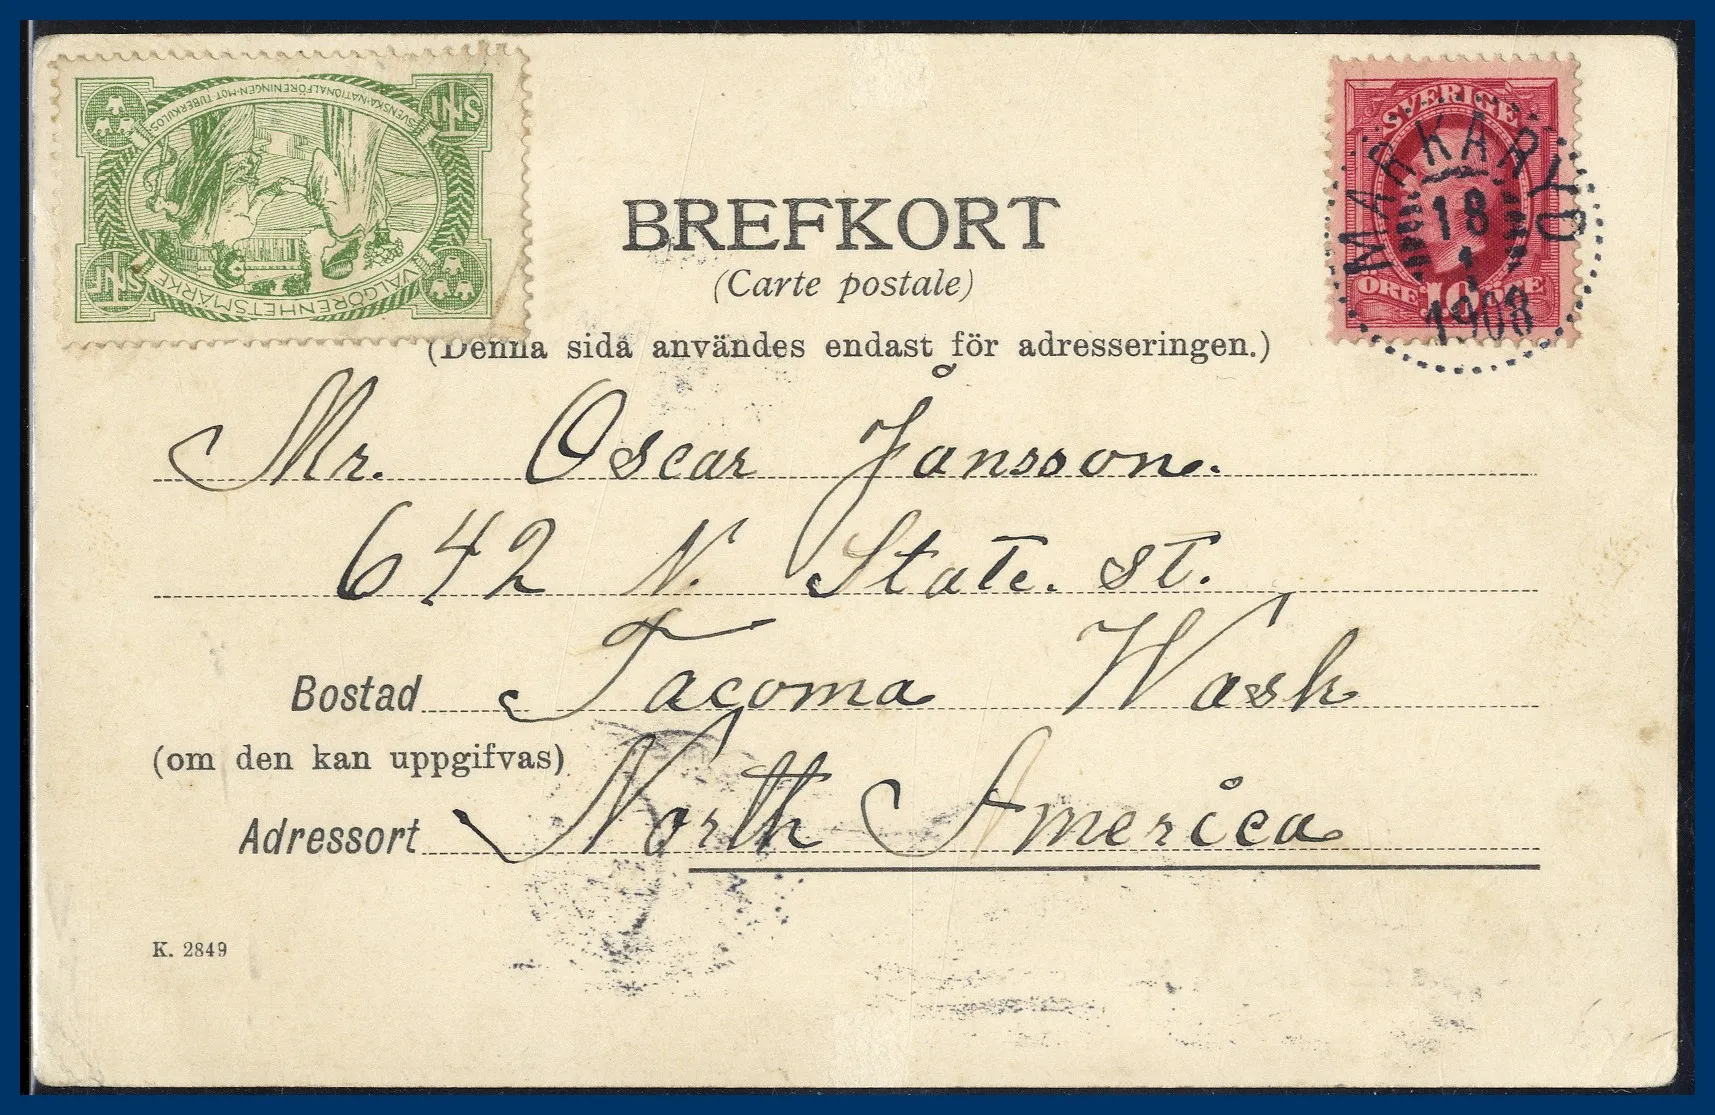 SVENSKA·NATIONALFÖRENINGEN·MOT·TUBERKULOS
SNF
SNF
VÄLGÖRENHETSMÄRKE
SVERIGE
ÖRE 10 ÖRE
MARKARYD
18
1
1908
BREFKORT
(Carte postale)
(Denna sida användes endast för adresseringen.)
Mr. Oscar Jånsson.
642 N. State. St.
Bostad Tacoma Wash
(om den kan uppgifvas)
Adressort North America
K. 2849